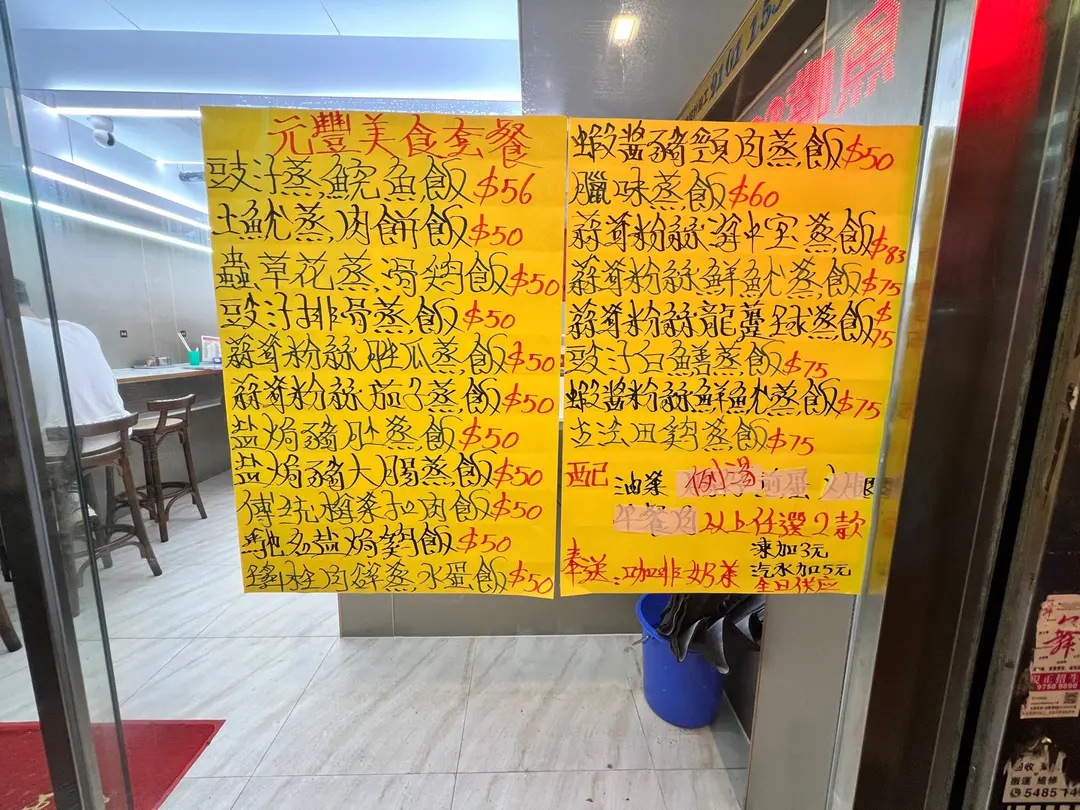 元豐美食套餐
豉汁蒸鯇魚飯 $56
土魷蒸肉餅飯 $50
蟲草花蒸滑雞飯 $50
豉汁排骨蒸飯 $50
蒜蓉粉絲胜瓜蒸飯 $50
蒜蓉粉絲茄子蒸飯 $50
盐焗豬肚蒸飯 $50
盐焗豬大腸蒸飯 $50
傳统梅菜扣肉飯 $50
馳名盐焗雞飯 $50
肉碎蒸水蛋飯 $50
蝦醬豬頸肉蒸飯 $50
臘味蒸飯 $60
蒜蓉粉絲海中宝蒸飯 $83
蒜蓉粉絲鮮魷蒸飯 $75
蒜蓉粉絲龍躉球蒸飯 $75
豉汁白鱔蒸飯 $75
蝦醬粉絲鮮魷蒸飯 $75
古法田雞蒸飯 $75
配 油菜 例湯
以上任選2款
凍加3元
奉送:咖啡奶茶 汽水加5元
全日供应
9161 153
招生
9750 9890
回收
搬運
5485